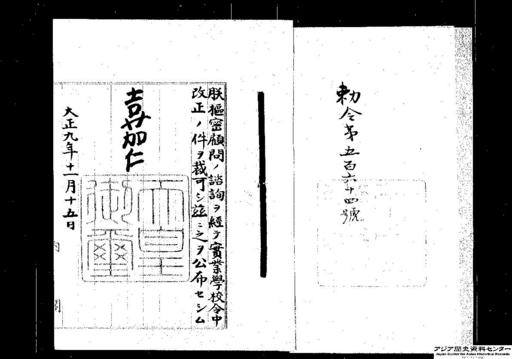 勅令第五百六十四號
朕樞密顧問ノ諮詢ヲ經テ實業學校令中
改正ノ件ヲ裁可シ茲ニ之ヲ公布セシム
嘉仁
天皇
御璽
大正九年十二月十五日
内閣
アジア歴史資料センター
Japan Center for Asian Historical Records